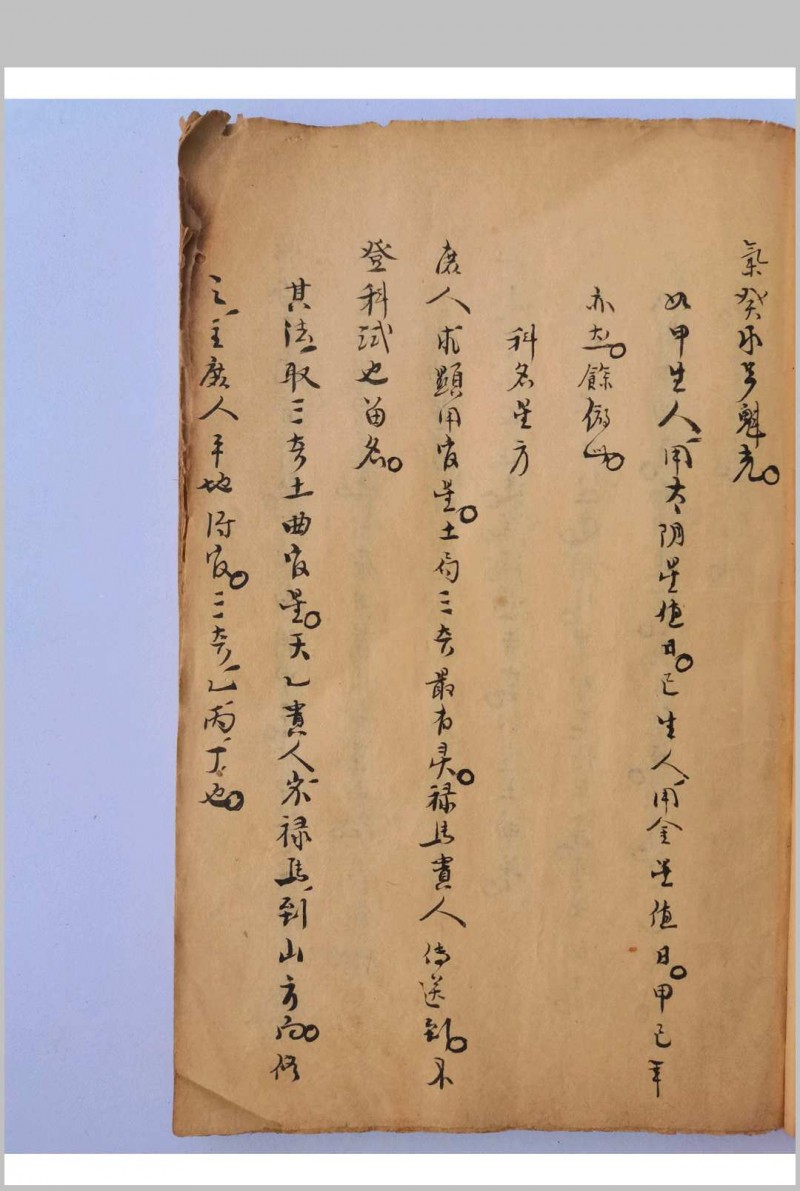 氣癸水是魁元。
如甲生人用太阴星值日。己生人用金星值日。甲己年
亦然。餘倣此
科名星方
庶人求顯用官星。土局三奇最有灵。禄馬貴人傳送到。不
登科試也留名。
其法取三奇土曲官星。天乙貴人家禄馬到山方向。修
之主庶人平地得官。三奇乙丙丁也。